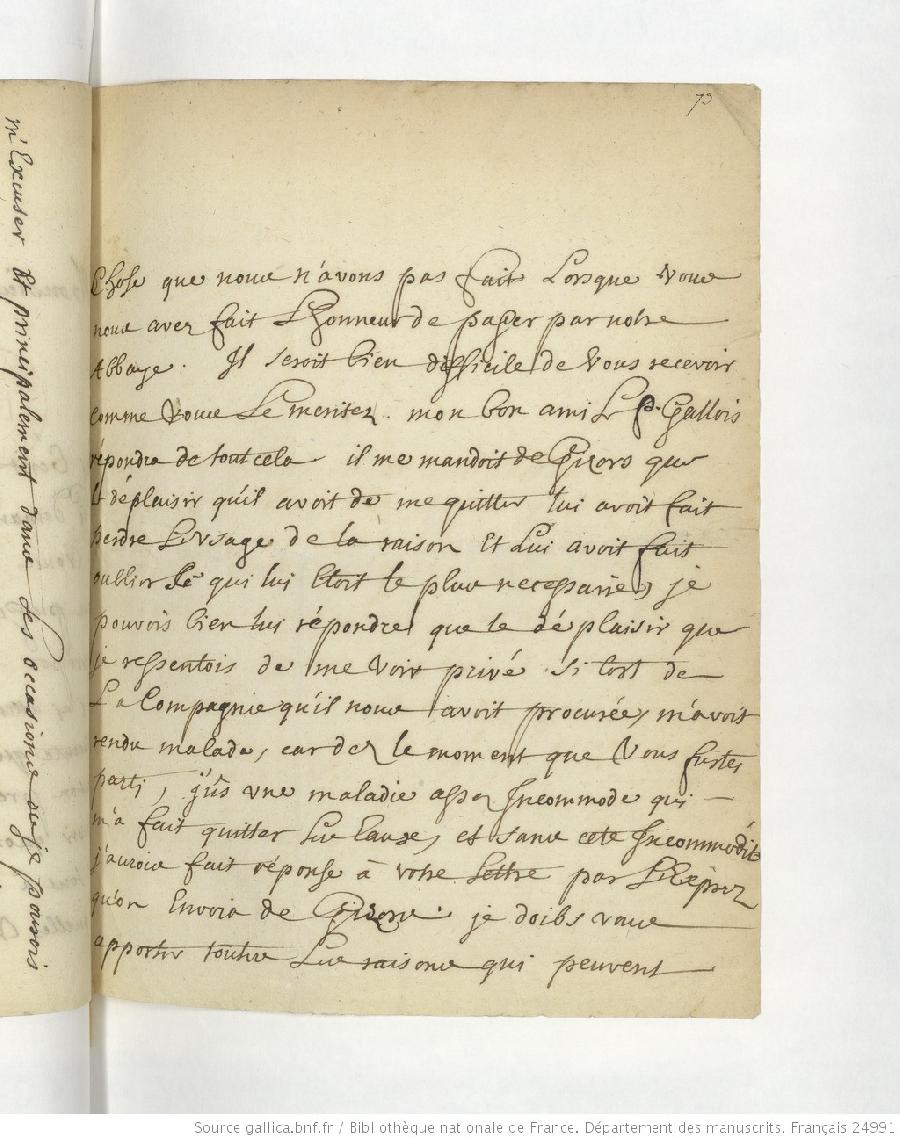 73
Chose que nous n'avons pas fait Lorsque vous
nous avez fait L'honneur de passer par notre
Abbaye. Il seroit bien difficile de vous recevoir
comme vous Le meritez. mon bon ami Le p. Gallois
répondra de tout cela. il me mandoit de Gisors que
le déplaisir qu'il avoit de me quitter lui avoit fait
perdre L'usage de la raison Et Lui avoit fait
oublier Ce qui lui Etoit le plus necessaire, je
pouvois bien lui répondre que le déplaisir que
je ressentois de me voir privé si tost de
La Compagnie qu'il nous avoit procurée, m'avoit
rendu malade, car dez le moment que Vous fustes
parti, j'us une maladie assez Incommode qui
m'a fait quitter et sans cete Incommodité
j'aurois fait réponse à votre Lettre par L'Exprez
qu'on Envoia de Gisors. je doibs vous
apporter toutes Les raisons qui peuvent
m'Excuser Et principalement dans des occasions ou je pouvois
Source gallica.bnf.fr / Bibliothèque nationale de France. Département des manuscrits. Français 24991